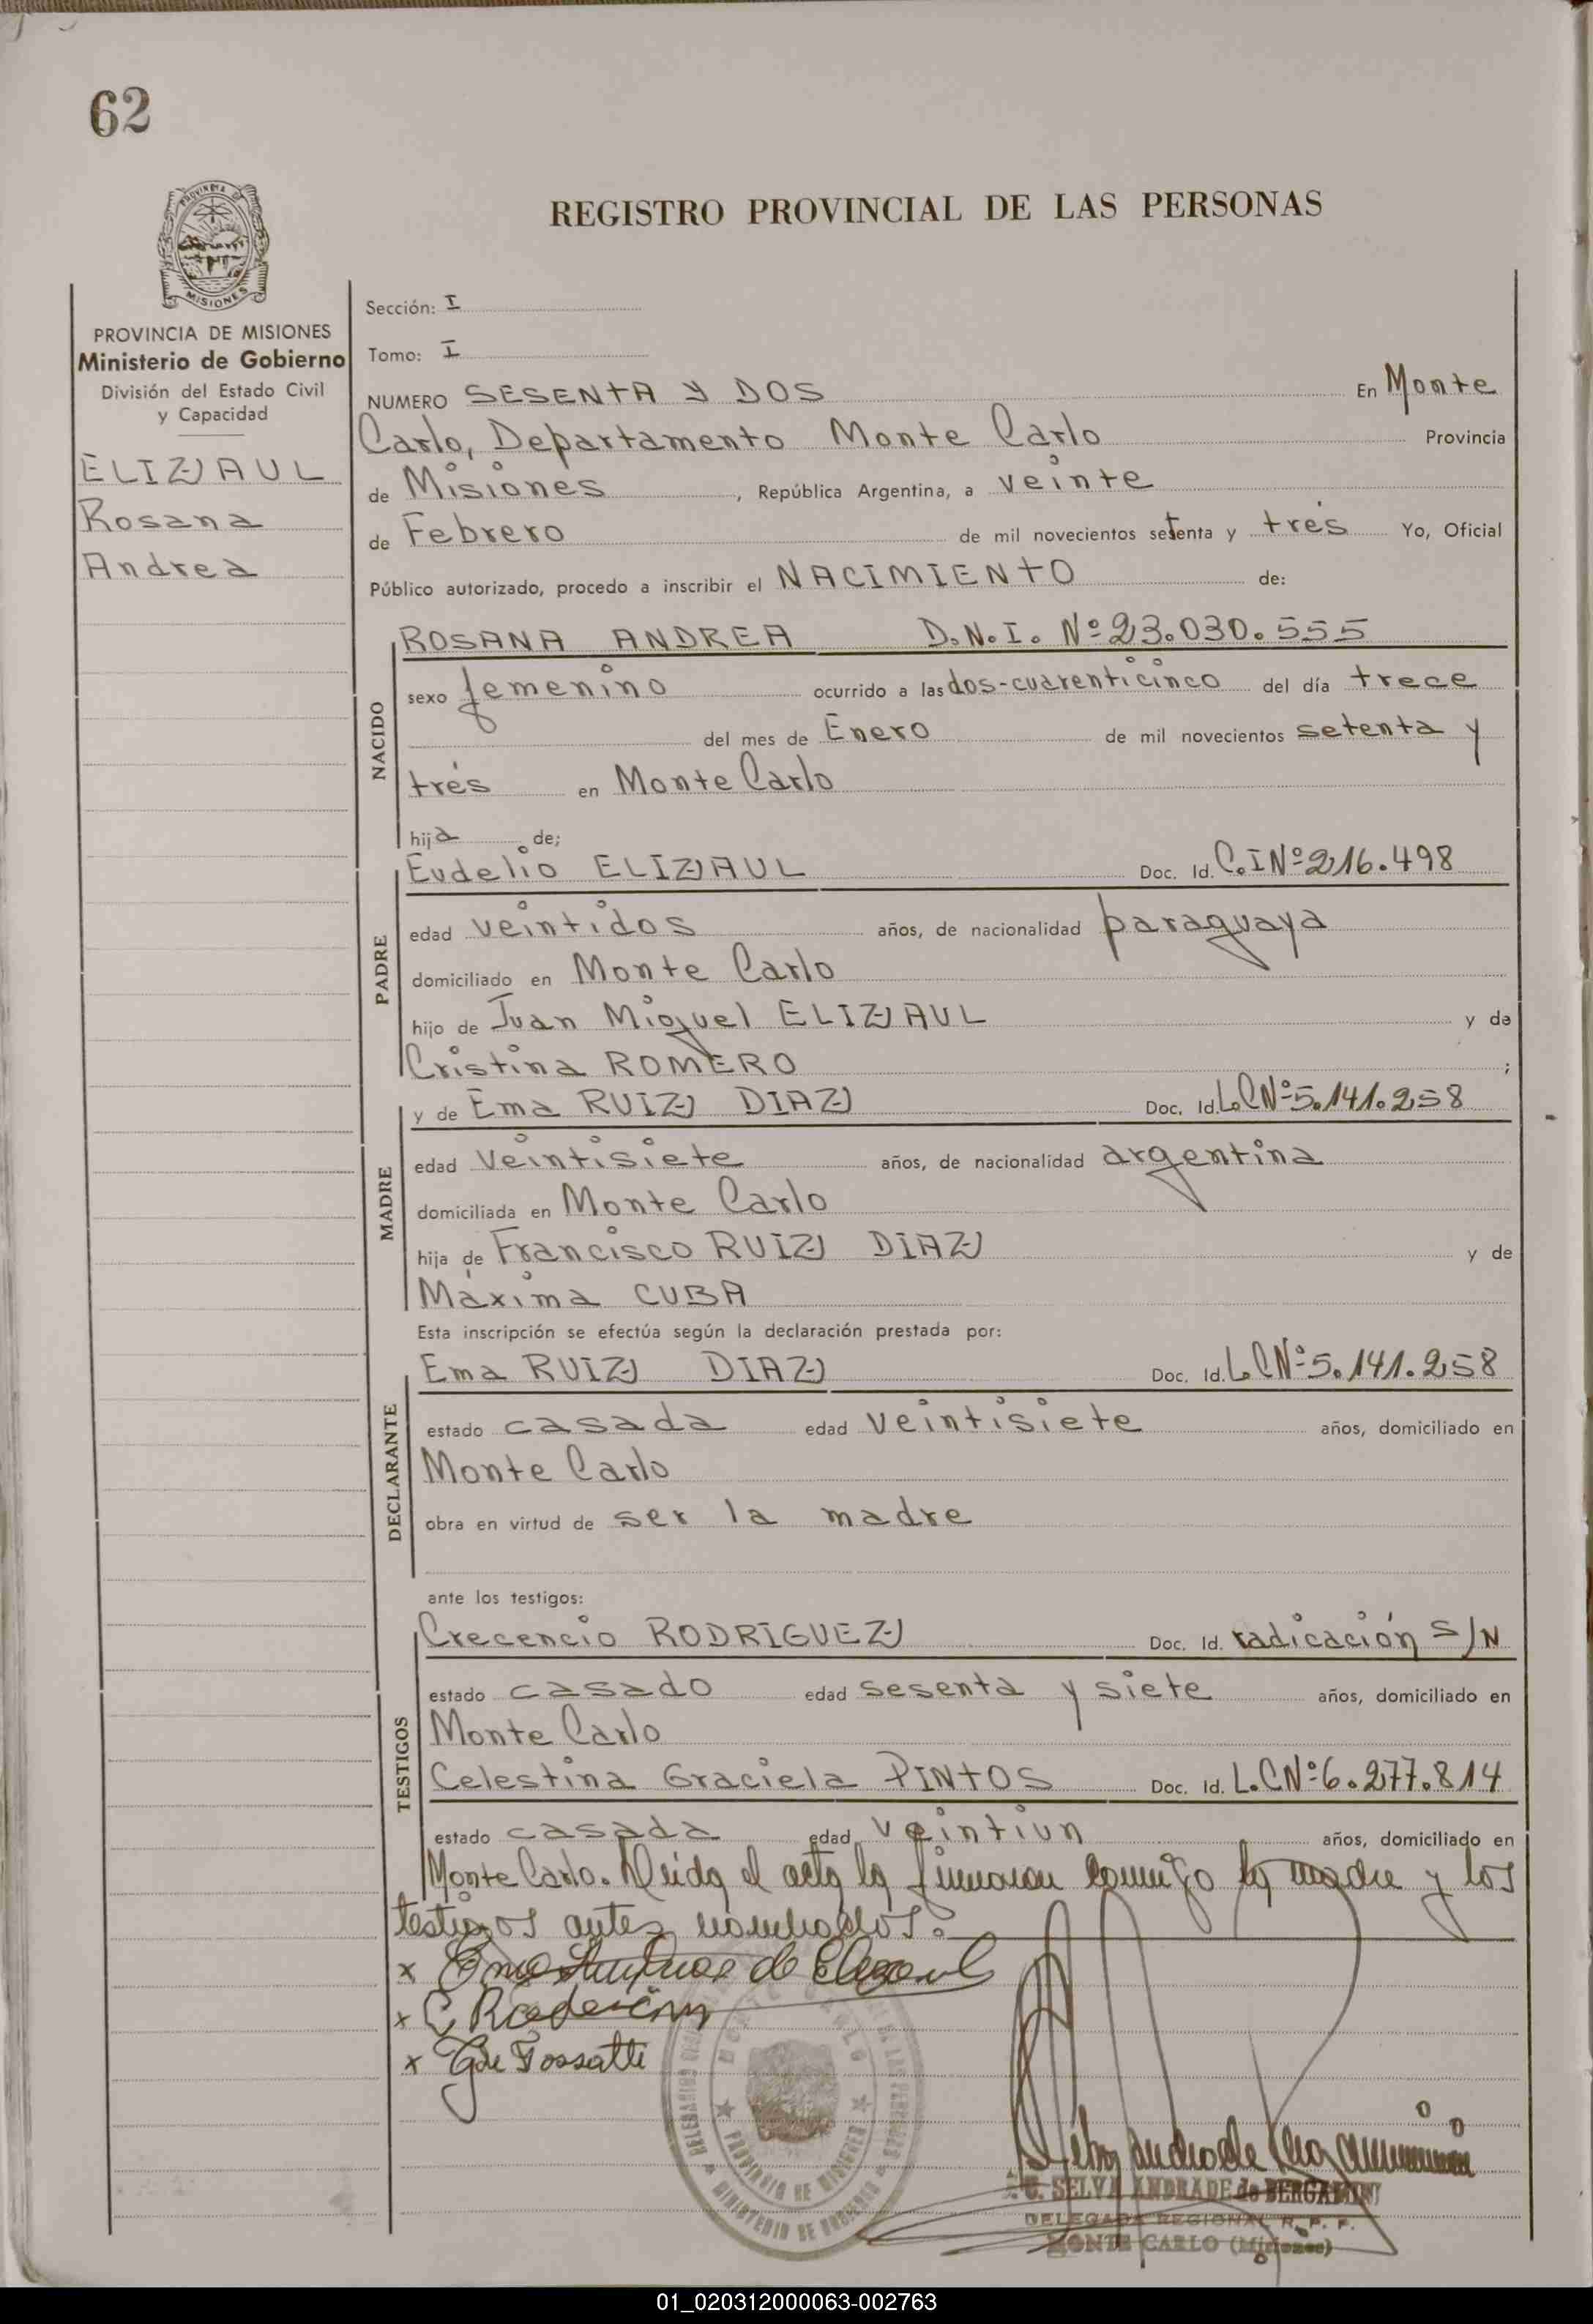 62
PROVINCIA DE
MISIONES
REGISTRO PROVINCIAL DE LAS PERSONAS
PROVINCIA DE MISIONES
Ministerio de Gobierno
División del Estado Civil
y Capacidad
ELIZAUL
Rosana
Andrea
Sección: I
Tomo: I
NUMERO SESENTA Y DOS En Monte
Carlo, Departamento Monte Carlo Provincia
de Misiones, República Argentina, a veinte
de Febrero de mil novecientos setenta y tres Yo, Oficial
Público autorizado, procedo a inscribir el NACIMIENTO de:
NACIDO
ROSANA ANDREA D.N.I. Nº 23.030.555
sexo femenino ocurrido a las dos-cuarenticinco del día trece
del mes de Enero de mil novecientos setenta y
tres en Monte Carlo
hija de;
PADRE
Eudelio ELIZAUL Doc. Id. C.I Nº 216.498
edad veintidos años, de nacionalidad paraguaya
domiciliado en Monte Carlo
hijo de Juan Miguel ELIZAUL y de
Cristina ROMERO ;
MADRE
y de Ema RUIZ DIAZ Doc. Id. L.C Nº 5.141.258
edad veintisiete años, de nacionalidad argentina
domiciliada en Monte Carlo
hija de Francisco RUIZ DIAZ y de
Máxima CUBA
Esta inscripción se efectúa según la declaración prestada por:
DECLARANTE
Ema RUIZ DIAZ Doc. Id. L.C Nº 5.141.258
estado casada edad veintisiete años, domiciliado en
Monte Carlo
obra en virtud de ser la madre
ante los testigos:
TESTIGOS
Crecencio RODRIGUEZ Doc. Id. radicación S/N
estado casado edad sesenta y siete años, domiciliado en
Monte Carlo
Celestina Graciela PINTOS Doc. Id. L.C Nº 6.277.814
estado casada edad veintiun años, domiciliado en
Monte Carlo. Leida el acta la firmaron conmigo la madre y los
testigos antes nombrados.
x Ema de Elizaul
x C
x G de Fossatti
MONTE CARLO
PROVINCIA DE MISIONES
MINISTERIO DE GOBIERNO
Selva Andrade de Bergamini
C. SELVA ANDRADE de BERGAMINI
DELEGADA REGIONAL R. P. P.
MONTE CARLO (Misiones)
01_020312000063-002763